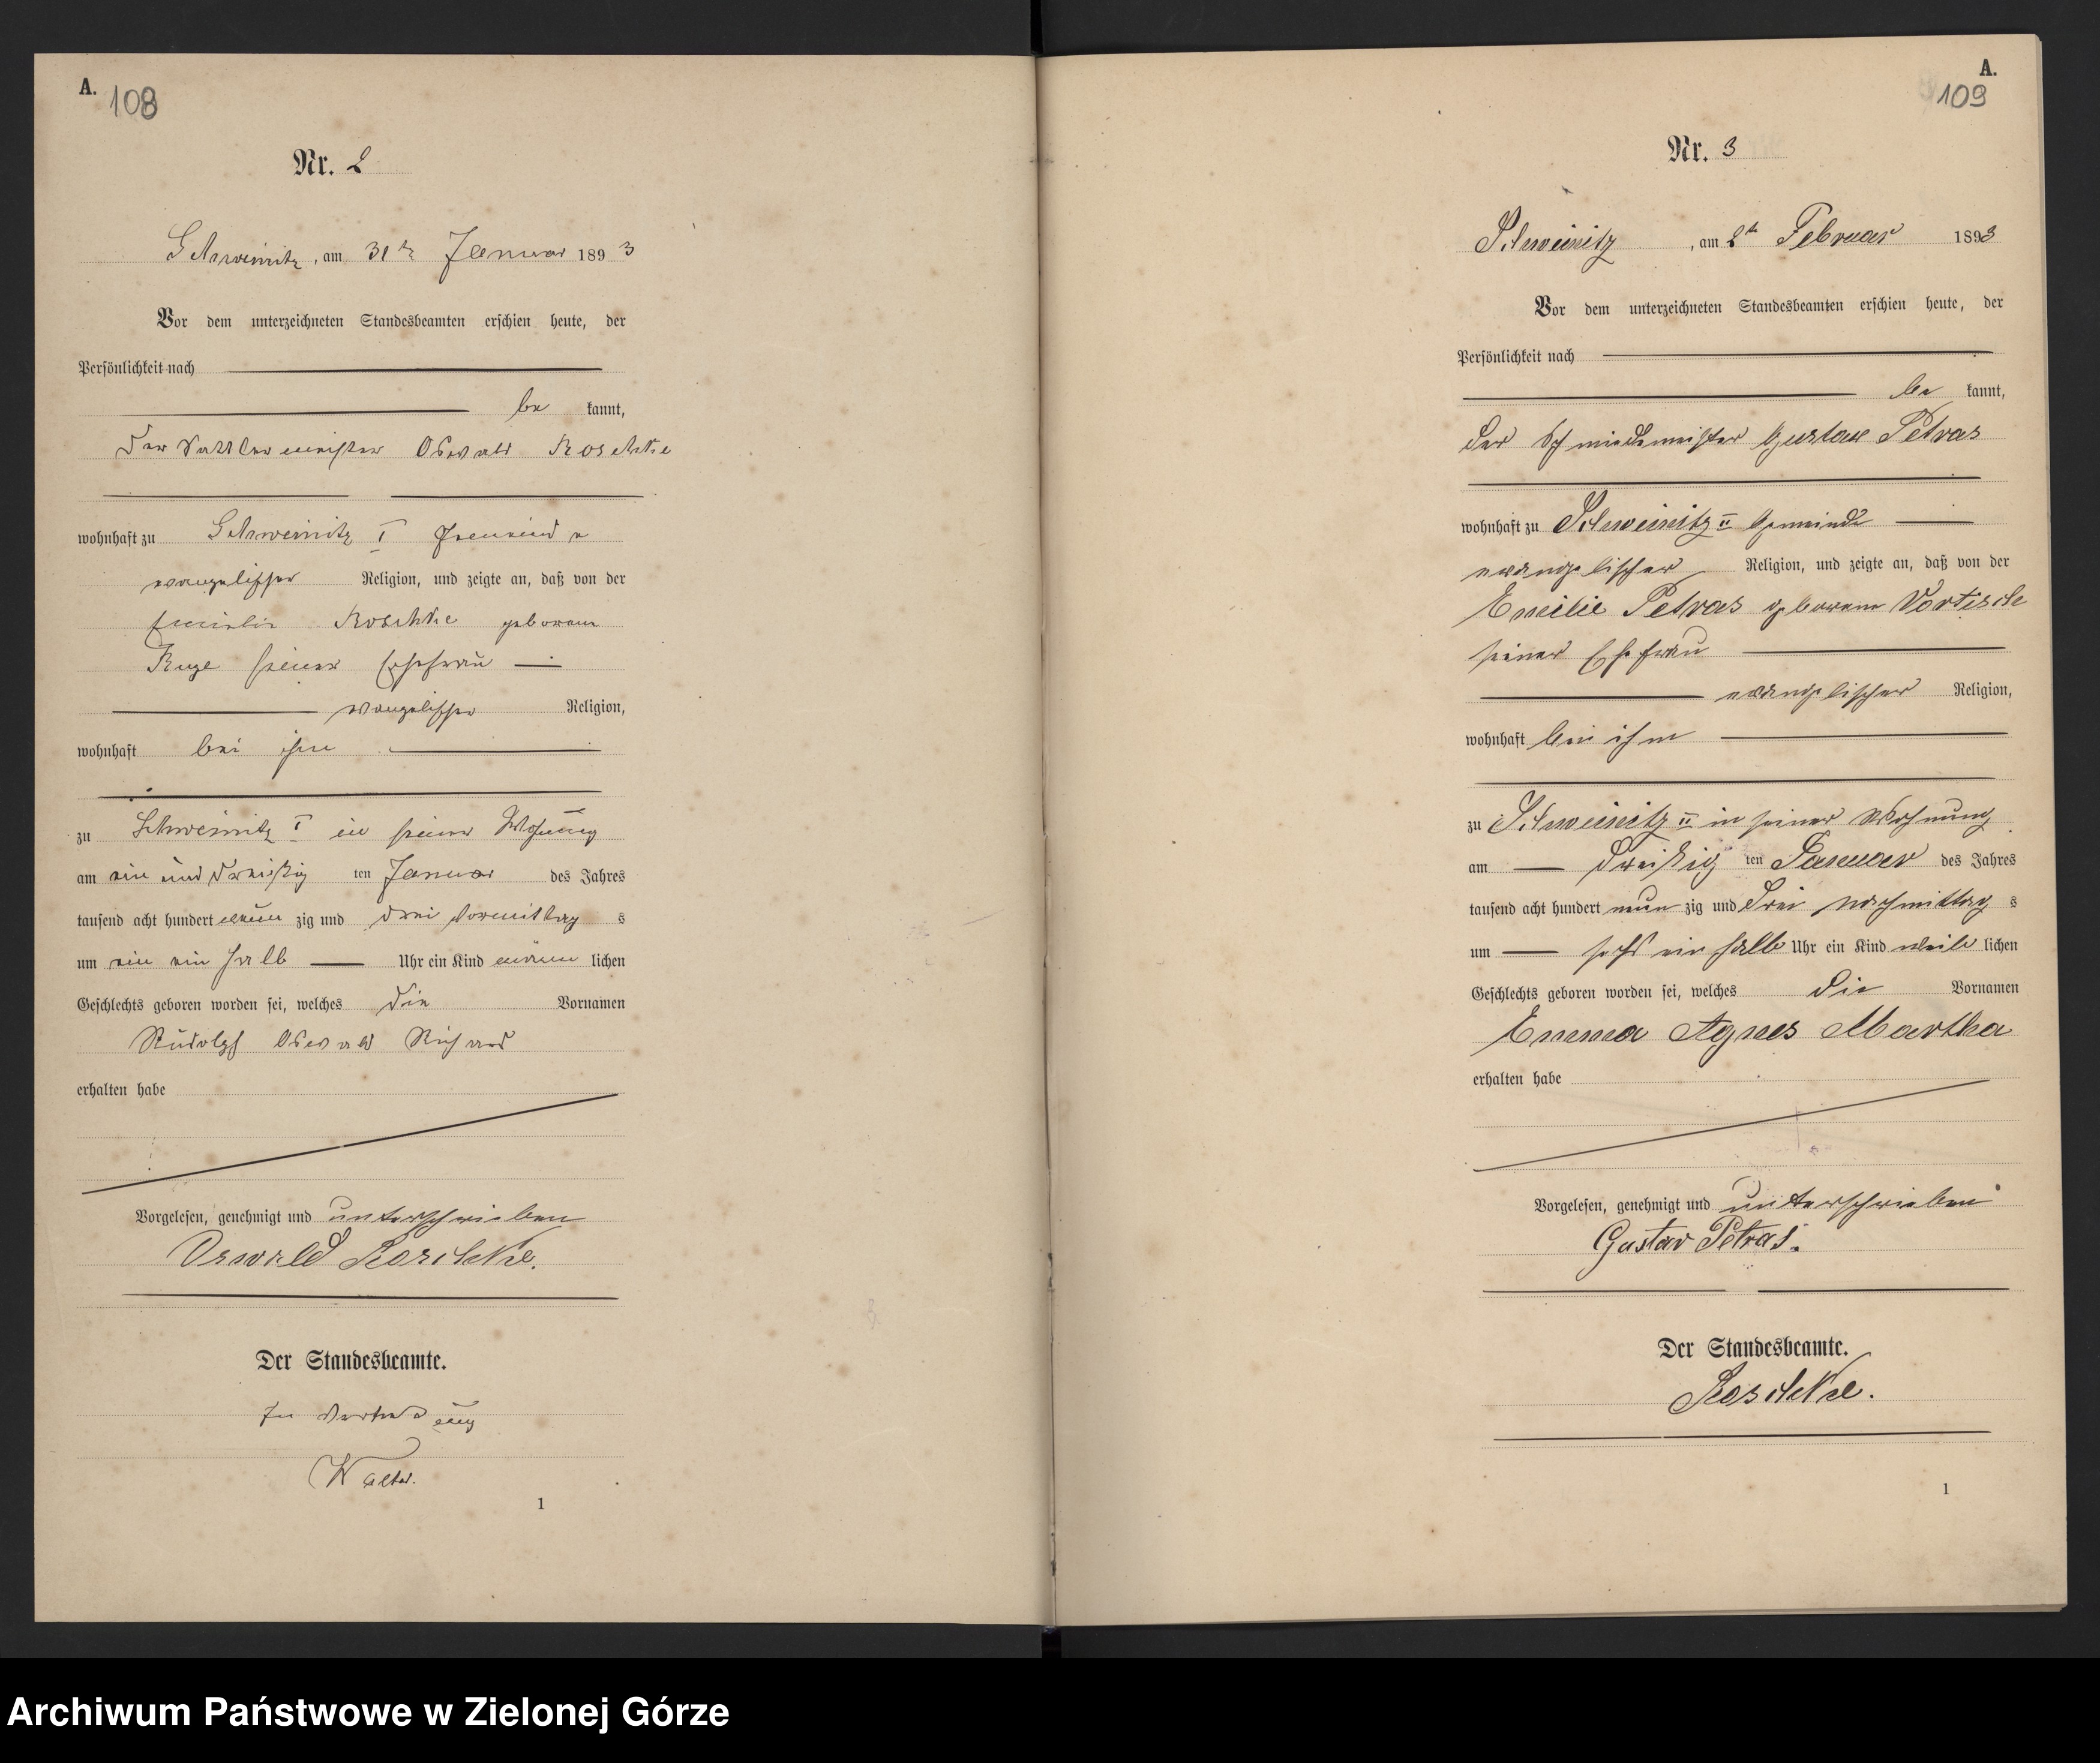 A.
108
Nr. 2
Schweinitz, am 31ten Januar 1893
Vor dem unterzeichneten Standesbeamten erschien heute, der
Persönlichkeit nach
be kannt,
der Sattlermeister Oswald Roschke
wohnhaft zu Schweinitz I Gemeinde
evangelischer Religion, und zeigte an, daß von der
Emilie Roschke geborene
Ruge seiner Ehefrau
evangelischer Religion,
wohnhaft bei ihm
zu Schweinitz I in seiner Wohnung
am ein und dreißig ten Januar des Jahres
tausend acht hundert neun zig und drei Vormittag s
um ein ein halb Uhr ein Kind männ lichen
Geschlechts geboren worden sei, welches die Vornamen
Rudolph Oswald Richard
erhalten habe
Vorgelesen, genehmigt und unterschrieben
Oswald Roschke.
Der Standesbeamte.
In Vertretung
Walter.
1
A.
109
Nr. 3
Schweinitz, am 2ten Februar 1893
Vor dem unterzeichneten Standesbeamten erschien heute, der
Persönlichkeit nach
be kannt,
der Schmiedemeister Gustav Petras
wohnhaft zu Schweinitz II Gemeinde
evangelischer Religion, und zeigte an, daß von der
Emilie Petras geborene Vortisch
seiner Ehefrau
evangelischer Religion,
wohnhaft bei ihm
zu Schweinitz II in seiner Wohnung
am dreißig ten Januar des Jahres
tausend acht hundert neun zig und drei nachmittag s
um sechs ein halb Uhr ein Kind weib lichen
Geschlechts geboren worden sei, welches die Vornamen
Emma Agnes Martha
erhalten habe
Vorgelesen, genehmigt und unterschrieben
Gustav Petras.
Der Standesbeamte.
Roschke.
1
Archiwum Państwowe w Zielonej Górze